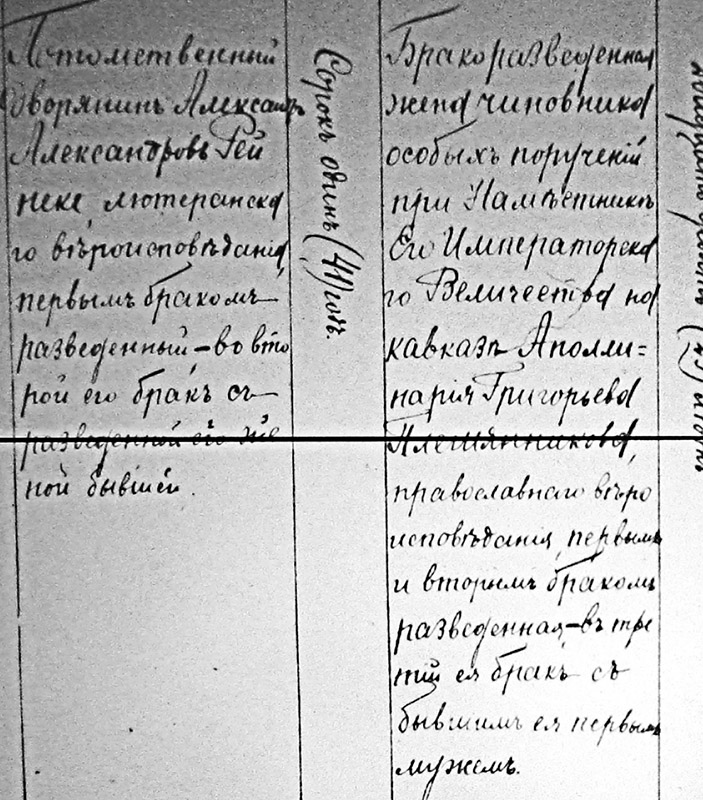 Потомственный
дворянинъ Александръ
Александровъ Рей
неке, лютеранска
го вѣроисповѣданія,
первымъ бракомъ
разведенный – во вто
рой его бракъ съ
разведенной его же
ной бывшей.
Сорокъ одинъ (41) годъ.
Бракоразведенная
жена чиновника
особыхъ порученій
при Намѣстникѣ
Его Императорска
го Величества на
Кавказѣ Аполли=
нарія Григорьева
Плешянникова,
православнаго вѣро
исповѣданія, первымъ
и вторымъ бракомъ
разведенная – въ тре
тій ея бракъ съ
бывшимъ ея первымъ
мужемъ.